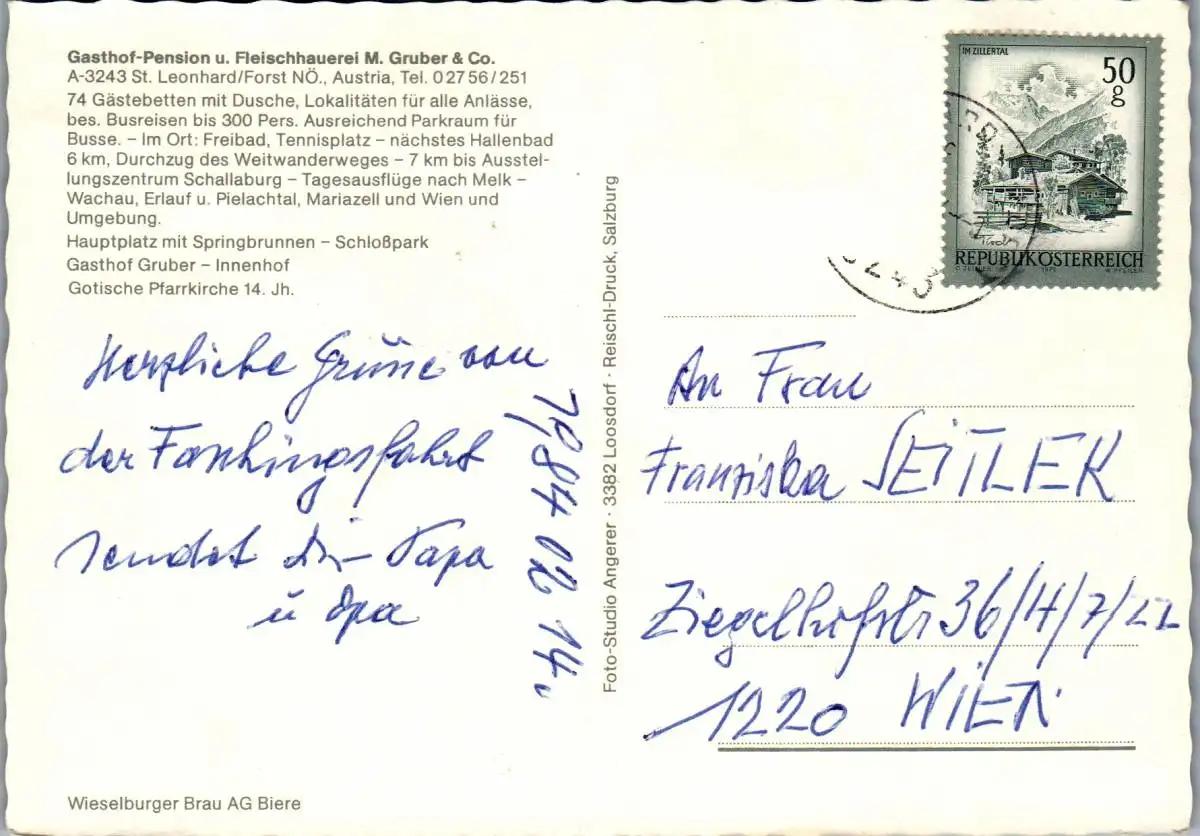 Gasthof-Pension u. Fleischhauerei M. Gruber & Co.
A-3243 St. Leonhard/Forst NÖ., Austria, Tel. 02756/251
74 Gästebetten mit Dusche, Lokalitäten für alle Anlässe,
bes. Busreisen bis 300 Pers. Ausreichend Parkraum für
Busse. – Im Ort: Freibad, Tennisplatz – nächstes Hallenbad
6 km, Durchzug des Weitwanderweges – 7 km bis Ausstel-
lungszentrum Schallaburg – Tagesausflüge nach Melk –
Wachau, Erlauf u. Pielachtal, Mariazell und Wien und
Umgebung.
Hauptplatz mit Springbrunnen – Schloßpark
Gasthof Gruber – Innenhof
Gotische Pfarrkirche 14. Jh.
Herzliche Grüße von
der Faschingsfahrt
sendet Dir Papa
u Opa
1984 02 14.
Foto-Studio Angerer · 3382 Loosdorf · Reischl-Druck, Salzburg
IM ZILLERTAL
50
g
REPUBLIK ÖSTERREICH
3243
An Frau
Franziska SEITLER
Ziegelhofstr 36/4/7/22
1220 WIEN
Wieselburger Brau AG Biere